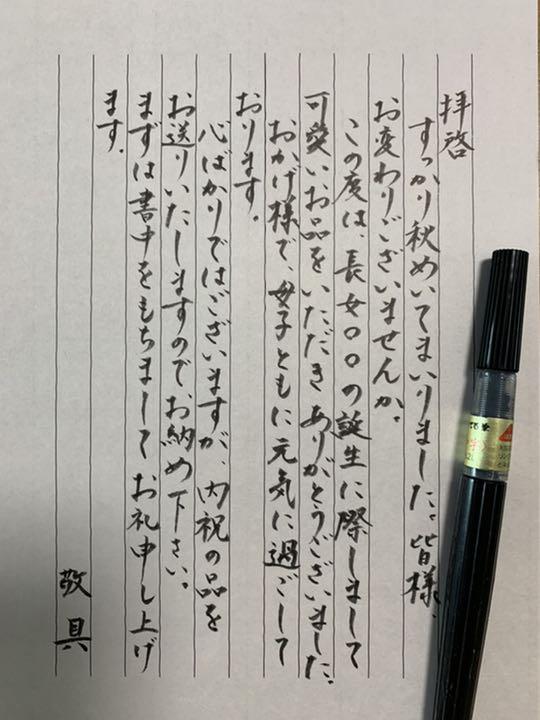 拝啓
すっかり秋めいてまいりました。皆様、
お変わりございませんか。
この度は、長女〇〇の誕生に際しまして
可愛いお品をいただきありがとうございました。
おかげ様で、母子ともに元気に過ごして
おります。
心ばかりではございますが、内祝の品を
お送りいたしますので、お納め下さい。
まずは書中をもちましてお礼申し上げ
ます。
敬具